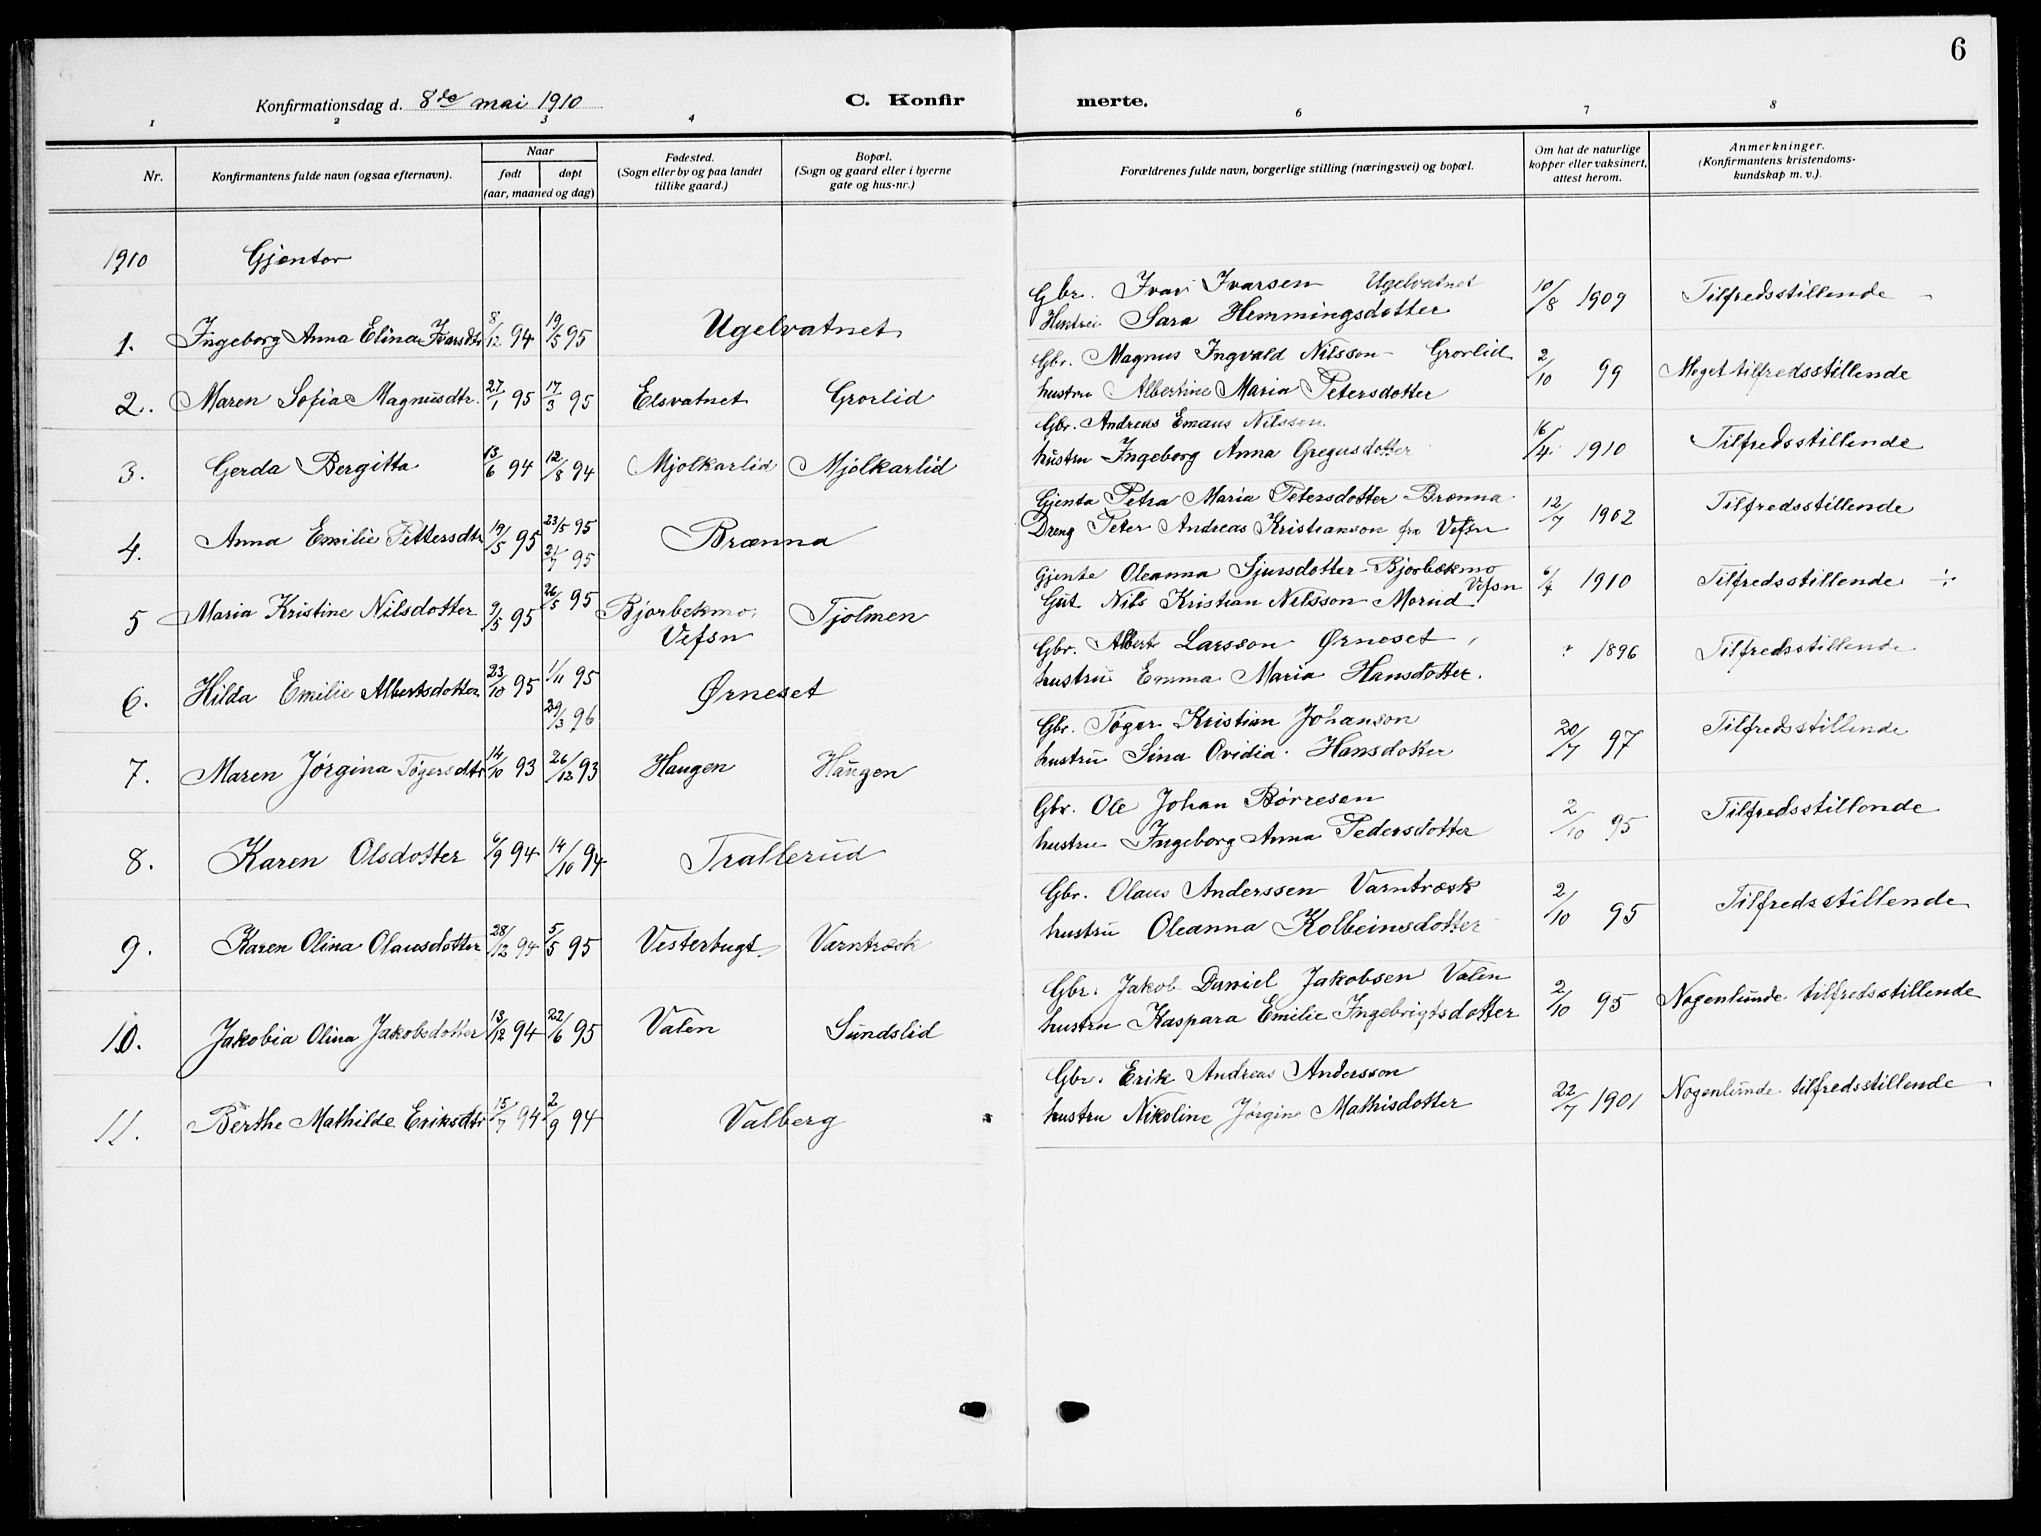 6
Konfirmationsdag d. 8de mai 1910
C. Konfirmerte.
1 2 3 4 6 7 8
Nr.
Konfirmantens fulde navn (ogsaa efternavn).
Naar
født døpt
(aar, maaned og dag)
Fødested.
(Sogn eller by og paa landet
tillike gaard.)
Bopæl.
(Sogn og gaard eller i byerne
gate og hus-nr.)
Forældrenes fulde navn, borgerlige stilling (næringsvei) og bopæl.
Om hat de naturlige
kopper eller vaksinert,
attest herom.
Anmerkninger.
(Konfirmantens kristendoms-
kundskap m. v.).
1910 Gjentor
1. Ingeborg Anna Elina Ivarsdtr 8/12 94 19/5 95 Ugelvatnet
Gbr. Ivar Ivarsen Ugelvatnet
Hustru Sara Hemmingsdotter
10/8 1909 Tilfredsstillende
2. Maren Sofia Magnusdtr. 27/1 95 17/3 95 Elsvatnet Grorlid
Gbr. Magnus Ingvald Nilsson Grorlid
hustru Albertine Maria Petersdotter
2/10 99 Meget tilfredsstillende
3. Gerda Bergitta 13/6 94 12/8 94 Mjolkarlid Mjolkarlid
Gbr. Andreas Emaus Nilssen
hustru Ingeborg Anna Gregusdotter
16/4 1910 Tilfredsstillende
4. Anna Emilie Pettersdtr 19/5 95 23/5 95 Brænna
21/7 95
Gjenta Petra Maria Petersdotter Brænna
Dreng Peter Andreas Kristianson fra Vefsn
12/7 1902 Tilfredsstillende
5 Maria Kristine Nilsdotter 9/5 95 26/5 95 Bjorbekmo, Tjolmen
Vefsn
Gjente Oleanna Sjursdotter Bjorbekmo
Vefsn
Gut Nils Kristian Nilsson Morud
6/4 1910 Tilfredsstillende ÷
6. Hilda Emilie Albertsdotter 23/10 95 1/11 95 Ørneset
29/3 96
Gbr. Albert Larsson Ørneset
hustru Emma Maria Hansdotter.
? 1896 Tilfredsstillende
7. Maren Jørgina Tøgersdtr 14/10 93 26/12 93 Haugen Haugen
Gbr. Tøger Kristian Johanson
hustru Sina Ovidia Hansdotter
20/7 97 Tilfredsstillende
8. Karen Olsdotter 6/9 94 14/10 94 Trallerud
Gbr. Ole Johan Børresen
hustru Ingeborg Anna Pedersdotter
2/10 95 Tilfredsstillende
9. Karen Olina Olausdotter 28/12 94 5/5 95 Vesterbugt Varntræsk
Gbr. Olaus Anderssen Varntræsk
hustru Oleanna Kolbeinsdotter
2/10 95 Tilfredsstillende
10. Jakobia Olina Jakobsdotter 13/12 94 22/6 95 Valen Sundslid
Gbr. Jakob Daniel Jakobsen Valen
hustru Kaspara Emilie Ingebrigtsdotter
2/10 95 Nogenlunde tilfredsstillende
11. Berthe Mathilde Eriksdtr 15/7 94 2/9 94 Valberg
Gbr. Erik Andreas Andersson
hustru Nikoline Jørgine Mathisdotter
22/7 1901 Nogenlunde tilfredsstillende